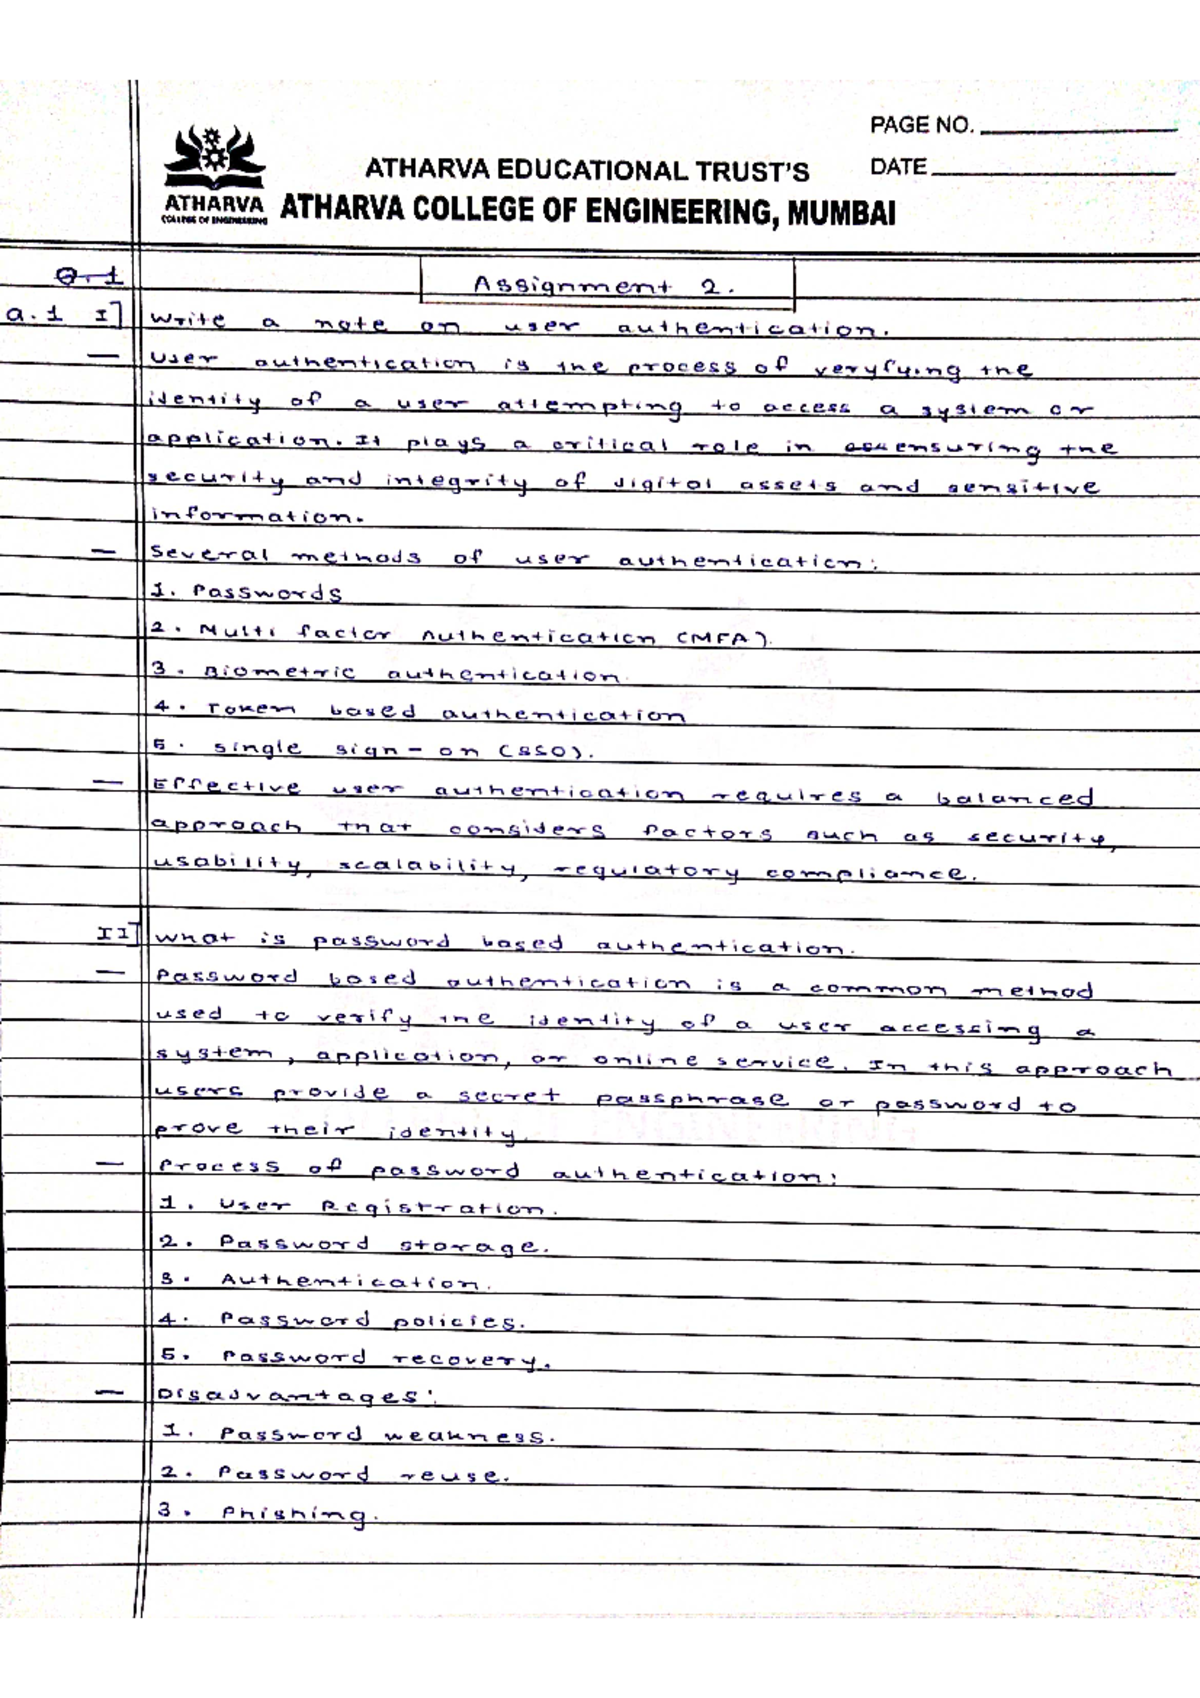 PAGE NO.
ATHARVA EDUCATIONAL TRUST'S
DATE
ATHARVA
COLLEGE OF ENGINEERING
ATHARVA COLLEGE OF ENGINEERING, MUMBAI
Q.1
Assignment 2.
Q.1 I] Write a note on user authentication.
— User authentication is the process of veryfying the
identity of a user attempting to access a system or
application. It plays a critical role in ensuring the
security and integrity of digital assets and sensitive
information.
— Several methods of user authentication:
1. Passwords
2. Multi factor Authentication (MFA).
3. Biometric authentication.
4. Token based authentication
5. single sign-on (SSO).
— Effective user authentication requires a balanced
approach that considers factors such as security,
usability, scalability, regulatory compliance.
II] What is password based authentication.
— Password based authentication is a common method
used to verify the identity of a user accessing a
system, application, or online service. In this approach
users provide a secret passphrase or password to
prove their identity.
— Process of password authentication:
1. User Registration.
2. Password storage.
3. Authentication.
4. Password policies.
5. Password recovery.
— Disadvantages:
1. Password weakness.
2. Password reuse.
3. Phishing.